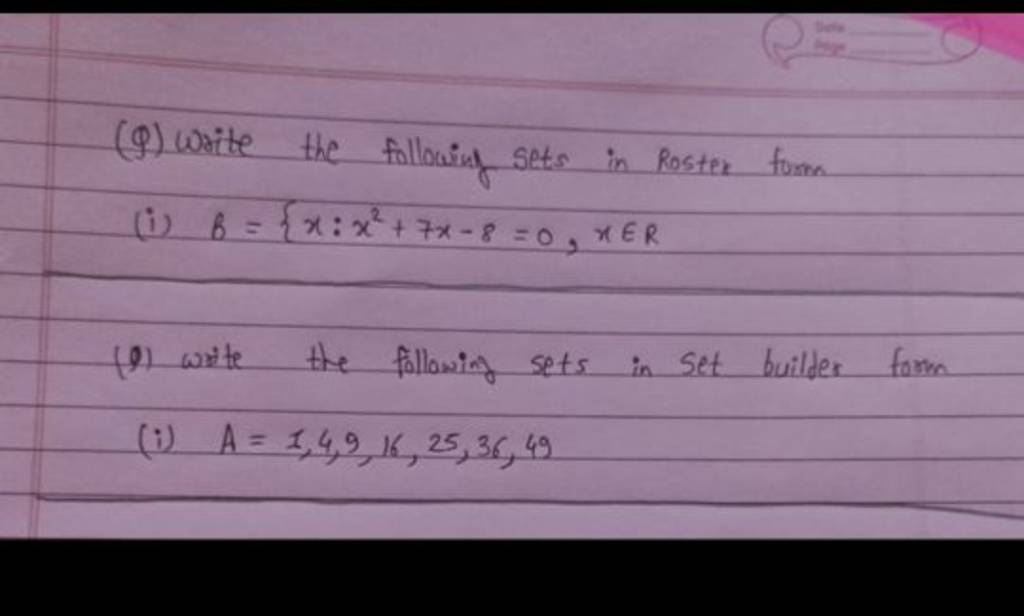 Date
Page
(Q) Write the following sets in Roster form
(i) B = {x : x² + 7x - 8 = 0, x ∈ R
(Q) write the following sets in Set builder form
(i) A = 1, 4, 9, 16, 25, 36, 49